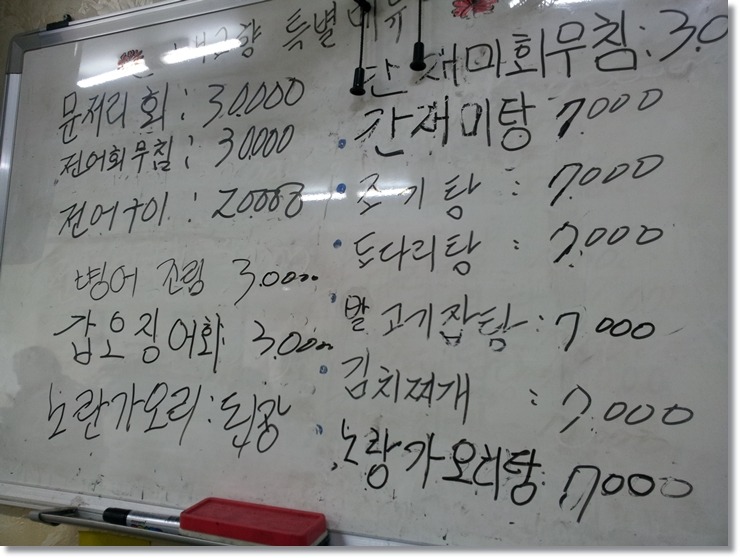 내고향 특별메뉴
문저리회 : 30.000
전어회무침 : 30.000
전어구이 : 20000
병어 조림 3.0000
갑오징어회 3.0000
노란가오리 :
간재미회무침 : 3.0
간재미탕 7.000
조기탕 : 7.000
도다리탕 : 7.000
발고기잡탕 : 7000
김치찌개 : 7.000
노랑가오리탕 7000